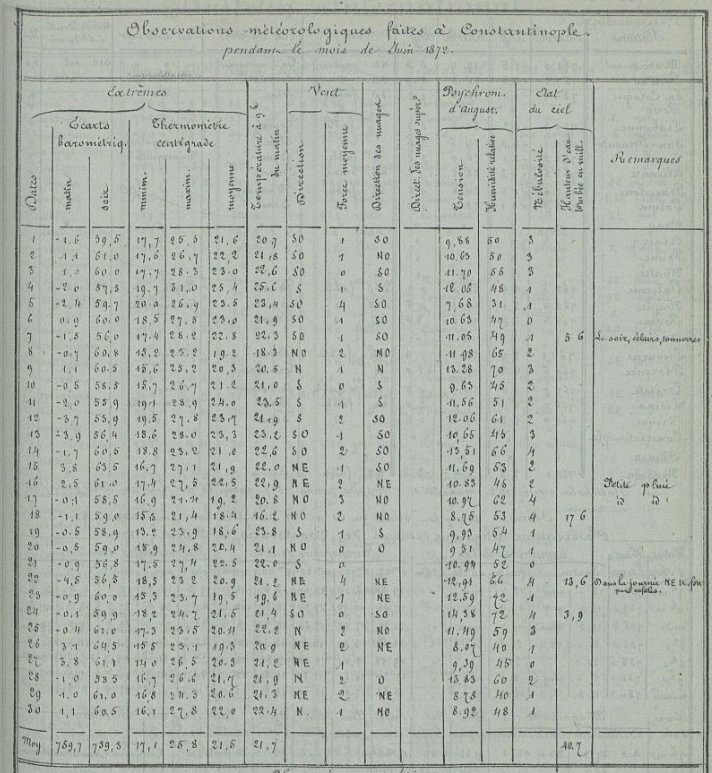 Observations météorologiques faites à Constantinople.
pendant le mois de Juin 1872.
Extrêmes Vent Psychrom. d'august. Etat du ciel
Ecarts barométriq. Thermomètre centigrade
Dates matin soir minim. maxim. moyenne Température à 9 h du matin Direction Force moyenne Direction des nuages Direct. des nuages supér. Tension Humidité relative Nébulosité Hauteur d'eau tombée en mill. Remarques
1 -1,6 59,5 17,7 25,5 21,6 20,7 SO 1 SO 9,88 50 3
2 1,1 61,0 17,6 26,7 22,2 21,8 SO 1 NO 10,63 50 3
3 1,0 60,0 17,7 28,3 23,0 22,6 SO 0 SO 11,70 56 3
4 -2,0 57,8 19,7 31,0 25,4 25,6 S 1 S 12,06 48 1
5 -2,4 59,7 20,0 26,9 23,5 23,4 SO 4 SO 7,68 31 1
6 0,9 60,0 18,5 27,5 23,0 21,9 SO 1 SO 10,63 47 0
7 -1,5 56,0 17,4 28,2 22,8 22,3 SO 1 SO 11,05 49 1 5 6 Le soir, éclairs, tonnerres
8 -0,7 60,8 15,2 23,2 19,2 18,3 NO 2 NO 11,98 65 2
9 1,1 60,5 15,6 25,2 20,3 20,5 N 1 N 13,28 70 3
10 -0,5 58,5 15,7 26,7 21,2 21,0 S 0 S 9,63 45 2
11 -2,0 55,9 19,1 28,9 24,0 23,5 S 1 S 11,56 51 2
12 -3,7 53,9 19,5 27,8 23,7 21,9 S 2 SO 12,06 61 2
13 -3,9 56,4 18,6 28,0 23,3 23,2 SO 1 SO 10,65 45 3
14 -1,7 60,5 18,8 23,2 21,0 22,6 SO 2 SO 13,51 66 4
15 3,8 63,5 16,7 27,1 21,9 22,0 NE 1 SO 11,69 53 2
16 2,5 61,0 17,4 27,5 22,5 22,9 NE 2 NE 10,83 45 2 Petite pluie
17 -0,1 58,5 16,9 21,4 19,2 20,8 NO 3 NO 10,97 62 4 id id
18 -1,1 59,0 15,3 21,4 18,4 16,2 NO 2 NO 8,75 53 4 17 6
19 -0,5 58,9 13,2 23,9 18,6 23,8 S 1 S 9,93 54 1
20 -0,5 59,0 15,9 24,8 20,4 21,1 NO 0 O 9,31 47 1
21 -0,9 56,8 17,5 27,4 22,5 22,0 S 0 10,94 52 0
22 -4,5 56,3 18,5 23,2 20,9 21,2 NE 4 NE 12,91 66 4 13,6 Dans la journée NE tr. fort
23 -0,9 60,0 15,3 23,7 19,5 19,6 NE 1 NE 12,59 72 1
24 -0,1 59,9 18,2 24,7 21,5 21,4 SO 0 SO 14,38 72 4 3,9
25 -0,4 61,0 17,3 23,5 20,4 22,2 N 2 NO 11,49 59 3
26 3,1 64,5 15,5 23,1 19,3 20,9 NE 2 NE 8,07 40 1
27 3,8 61,8 14,0 26,5 20,3 21,2 NE 1 9,39 45 0
28 -1,0 58,5 16,7 26,6 21,7 21,9 N 2 O 13,83 60 2
29 -1,0 61,0 16,8 24,3 20,6 21,3 NE 2 NE 8,78 40 1
30 1,1 60,5 16,1 27,8 22,0 22,4 N 1 NO 8,92 48 1
Moy 759,7 759,3 17,1 25,8 21,5 21,7 40,7